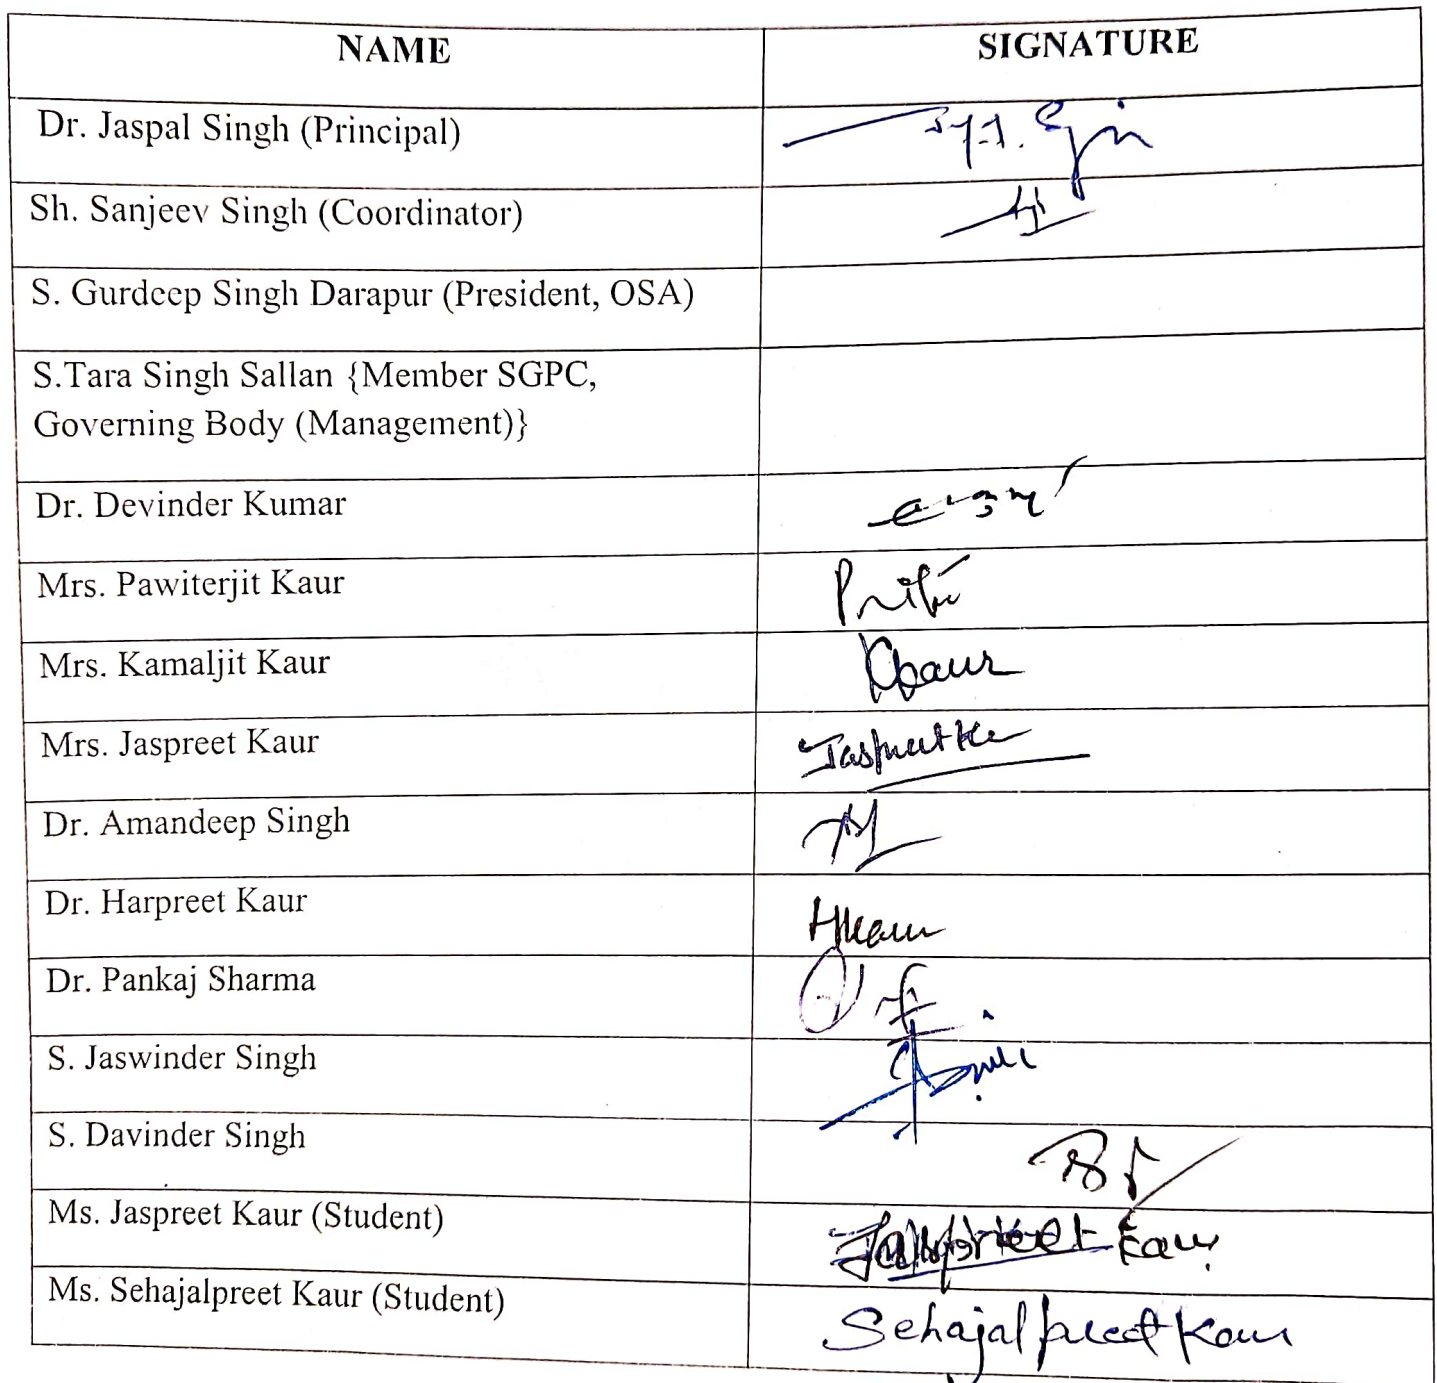 NAME SIGNATURE
Dr. Jaspal Singh (Principal)
Sh. Sanjeev Singh (Coordinator)
S. Gurdeep Singh Darapur (President, OSA)
S.Tara Singh Sallan {Member SGPC,
Governing Body (Management)}
Dr. Devinder Kumar
Mrs. Pawiterjit Kaur
Mrs. Kamaljit Kaur
Mrs. Jaspreet Kaur
Dr. Amandeep Singh
Dr. Harpreet Kaur
Dr. Pankaj Sharma
S. Jaswinder Singh
S. Davinder Singh
Ms. Jaspreet Kaur (Student) Jaspreet Kaur
Ms. Sehajalpreet Kaur (Student) Sehajalpreet Kaur